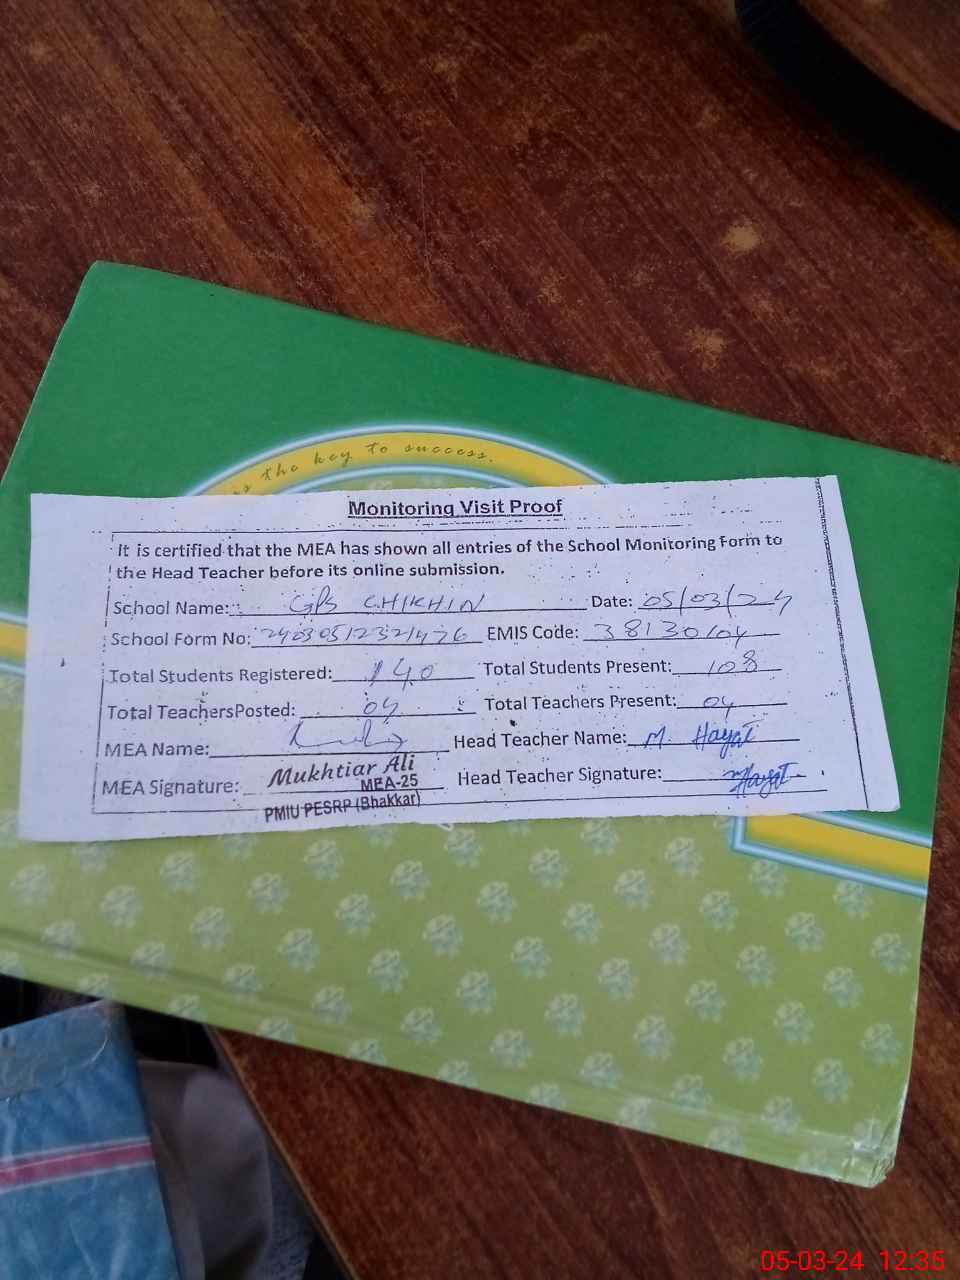 is the key to success.
Monitoring Visit Proof
It is certified that the MEA has shown all entries of the School Monitoring Form to
the Head Teacher before its online submission.
School Name: GPS CHIKHIN Date: 05/03/24
School Form No: EMIS Code: 38130104
Total Students Registered: 140 Total Students Present: 108
Total TeachersPosted: 04 Total Teachers Present: 04
MEA Name: Head Teacher Name: M. Hayat
MEA Signature: Mukhtiar Ali Head Teacher Signature: Hayat
MEA-25
PMIU PESRP (Bhakkar)
05-03-24 12:35